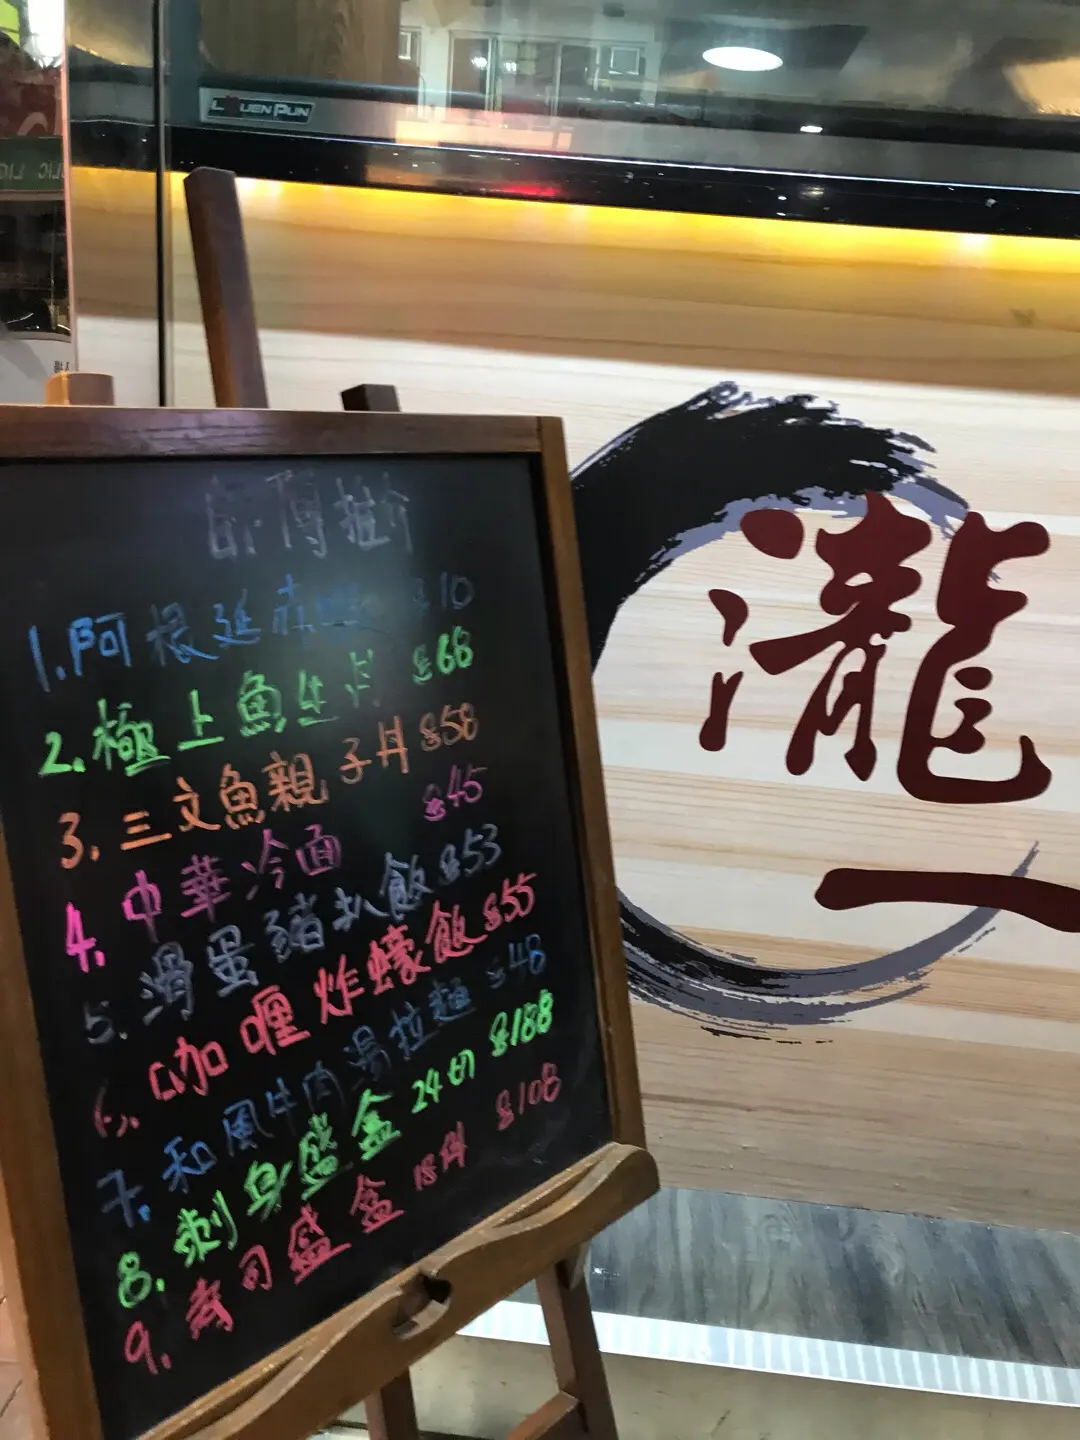 LOUEN PUN
師傅推介
1. 阿根延赤蝦 $10
2. 極上魚生丼 $68
3. 三文魚親子丼 $58
4. 中華冷面 $45
5. 滑蛋豬扒飯 $53
6. 咖喱炸蠔飯 $55
7. 和風牛肉湯拉麵 $48
8. 刺身盛盒 24切 $188
9. 寿司盛盒 18件 $108
瀧
一